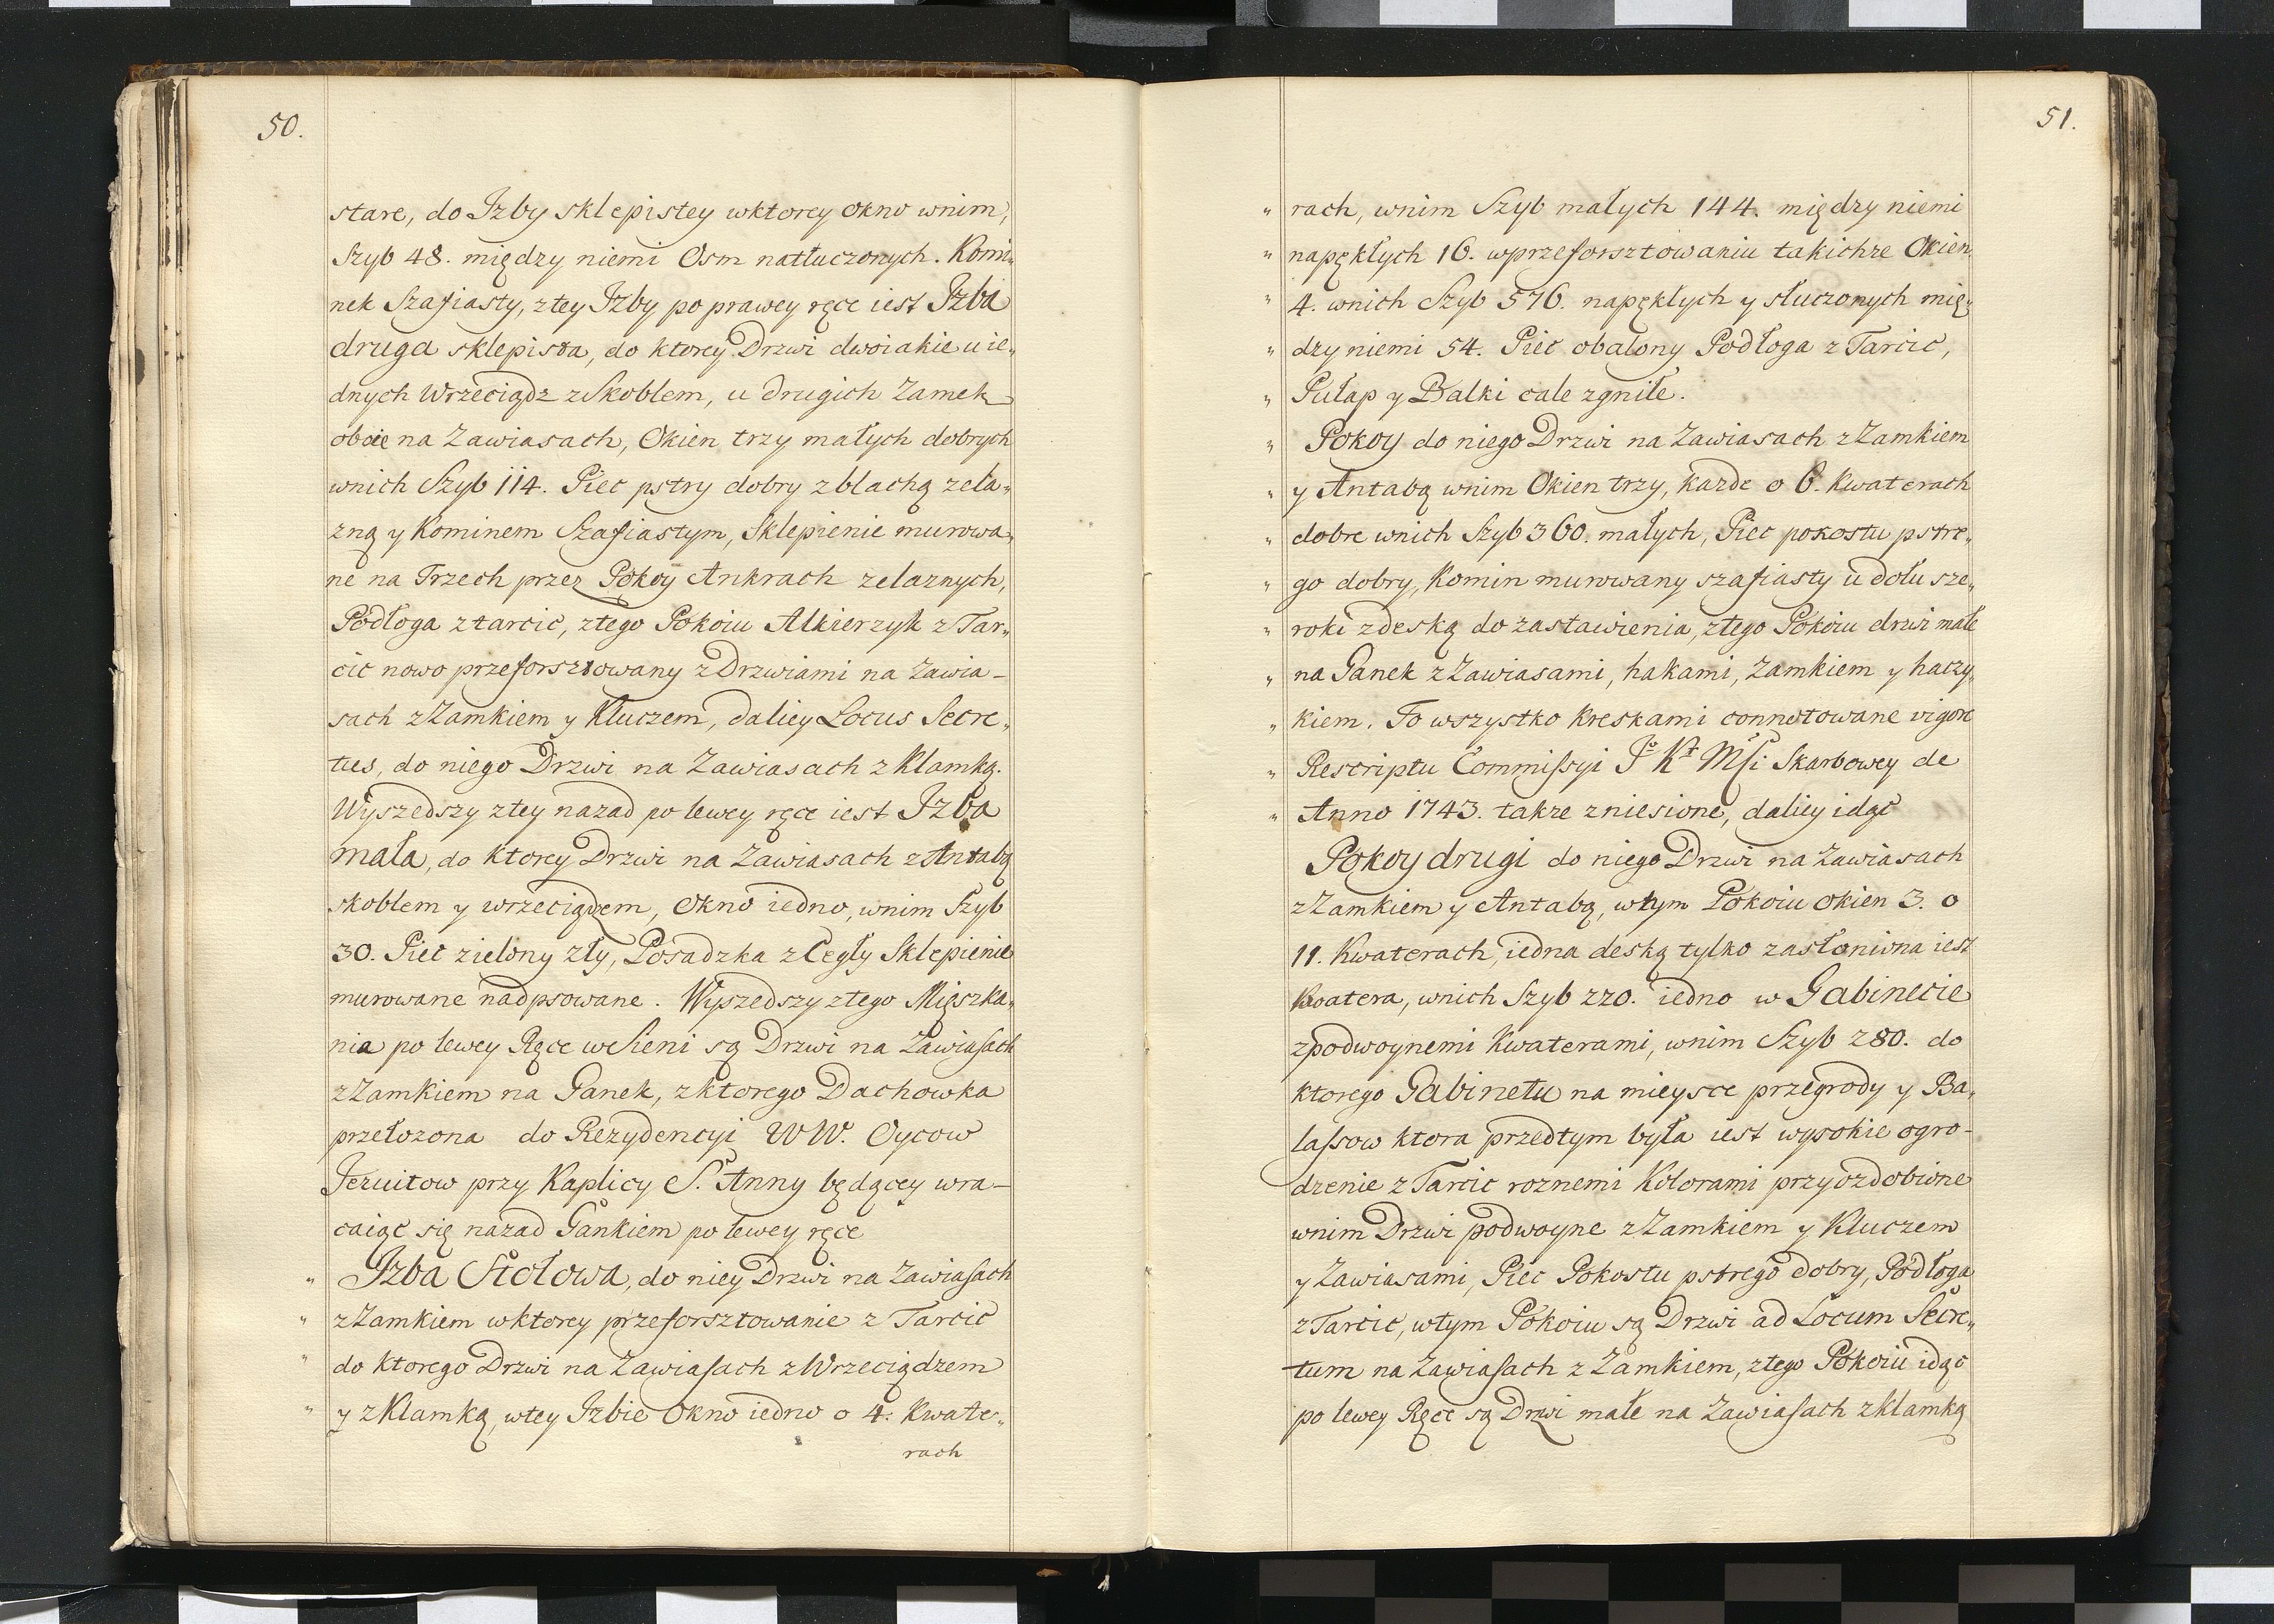 50.
stare, do Izby sklepistey wktorey okno wnim,
Szyb 48. między niemi Osm natłuczonych. Komi„
nek Szafiasty, ztey Izby po prawey ręce iest Izba
druga sklepista, do ktorey Drzwi dwoiakie u ie„
dnych Wrzeciądz z Skoblem, u drugich Zamek
oboie na Zawiasach, Okien trzy małych dobrych
wnich Szyb 114. Piec pstry dobry z blachą zela„
zną y Kominem Szafiastym, Sklepienie murowa„
ne na Trzech przez Pokoy Ankrach zelaznych,
Podłoga z tarcic, ztego Pokoiu Alkierzyk z Tar„
cic nowo przeforsztowany z Drzwiami na Zawia-
sach z Zamkiem y Kluczem, daliey Locus Secre„
tus, do niego Drzwi na Zawiasach z Klamką.
Wyszedszy ztey nazad po lewey ręce iest Izba
mała, do ktorey Drzwi na Zawiasach z Antabą
skoblem y wrzeciądzem, Okno iedno, wnim Szyb
30. Piec zielony zły, Posadzka z Cegły Sklepienie
murowane nadpsowane. Wyszedszy ztego Mięszka„
nia po lewey Ręce w Sieni są Drzwi na Zawiasach
z Zamkiem na Ganek, z ktorego Dachowka
przełozona do Rezydencyi WW. Oycow
Jezuitow przy Kaplicy S. Anny będącey wra-
caiąc się nazad Gankiem po lewey ręce
„ Izba Stołowa, do niey Drzwi na Zawiasach
„ z Zamkiem w ktorey przeforsztowanie z Tarcic
„ do ktorego Drzwi na Zawiasach z Wrzeciądzem
„ y z Klamką, wtey Izbie Okno iedno o 4. Kwate„
rach
51.
„ rach, wnim Szyb małych 144. między niemi
„ napękłych 16. w przeforsztowaniu takichze Okien
„ 4. wnich Szyb 576. napękłych y słuczonych mię„
„ dzy niemi 54. Piec obalony Podłoga z Tarcic,
„ Pułap y Balki cale zgniłe.
„ Pokoy do niego Drzwi na Zawiasach z Zamkiem
„ y Antabą wnim Okien trzy, kazde o 6. Kwaterach
„ dobre wnich Szyb 360. małych, Piec pokostu pstre„
„ go dobry, Komin murowany szafiasty u dołu sze„
„ roki z deską do zastawienia, ztego Pokoiu drzwi małe
„ na Ganek z Zawiasami, hakami, Zamkiem y haczy„
„ kiem. To wszystko kreskami connotowane vigore
„ Rescriptu Commissyi Jo Kr Msci Skarbowey de
„ Anno 1743. takze zniesione, daliey idąc
Pokoy drugi do niego Drzwi na Zawiasach
z Zamkiem y Antabą, wtym Pokoiu okien 3. o
11. Kwaterach, iedna deską tylko zasłoniona iest
Kwatera, wnich Szyb 220. iedno w Gabinecie
z podwoynemi Kwaterami, wnim Szyb 280. do
ktorego Gabinetu na mieysce przegrody y Ba„
lassow ktora przedtym była iest wysokie ogro-
dzenie z Tarcic roznemi Kolorami przyozdobione
wnim Drzwi podwoyne z Zamkiem y Kluczem
y Zawiasami, Piec Pokostu pstrego dobry, Podłoga
z Tarcic, wtym Pokoiu są Drzwi ad Locum Secre„
tum na Zawiasach z Zamkiem, ztego Pokoiu idąc
po lewey Ręce są Drzwi małe na Zawiasach z klamką